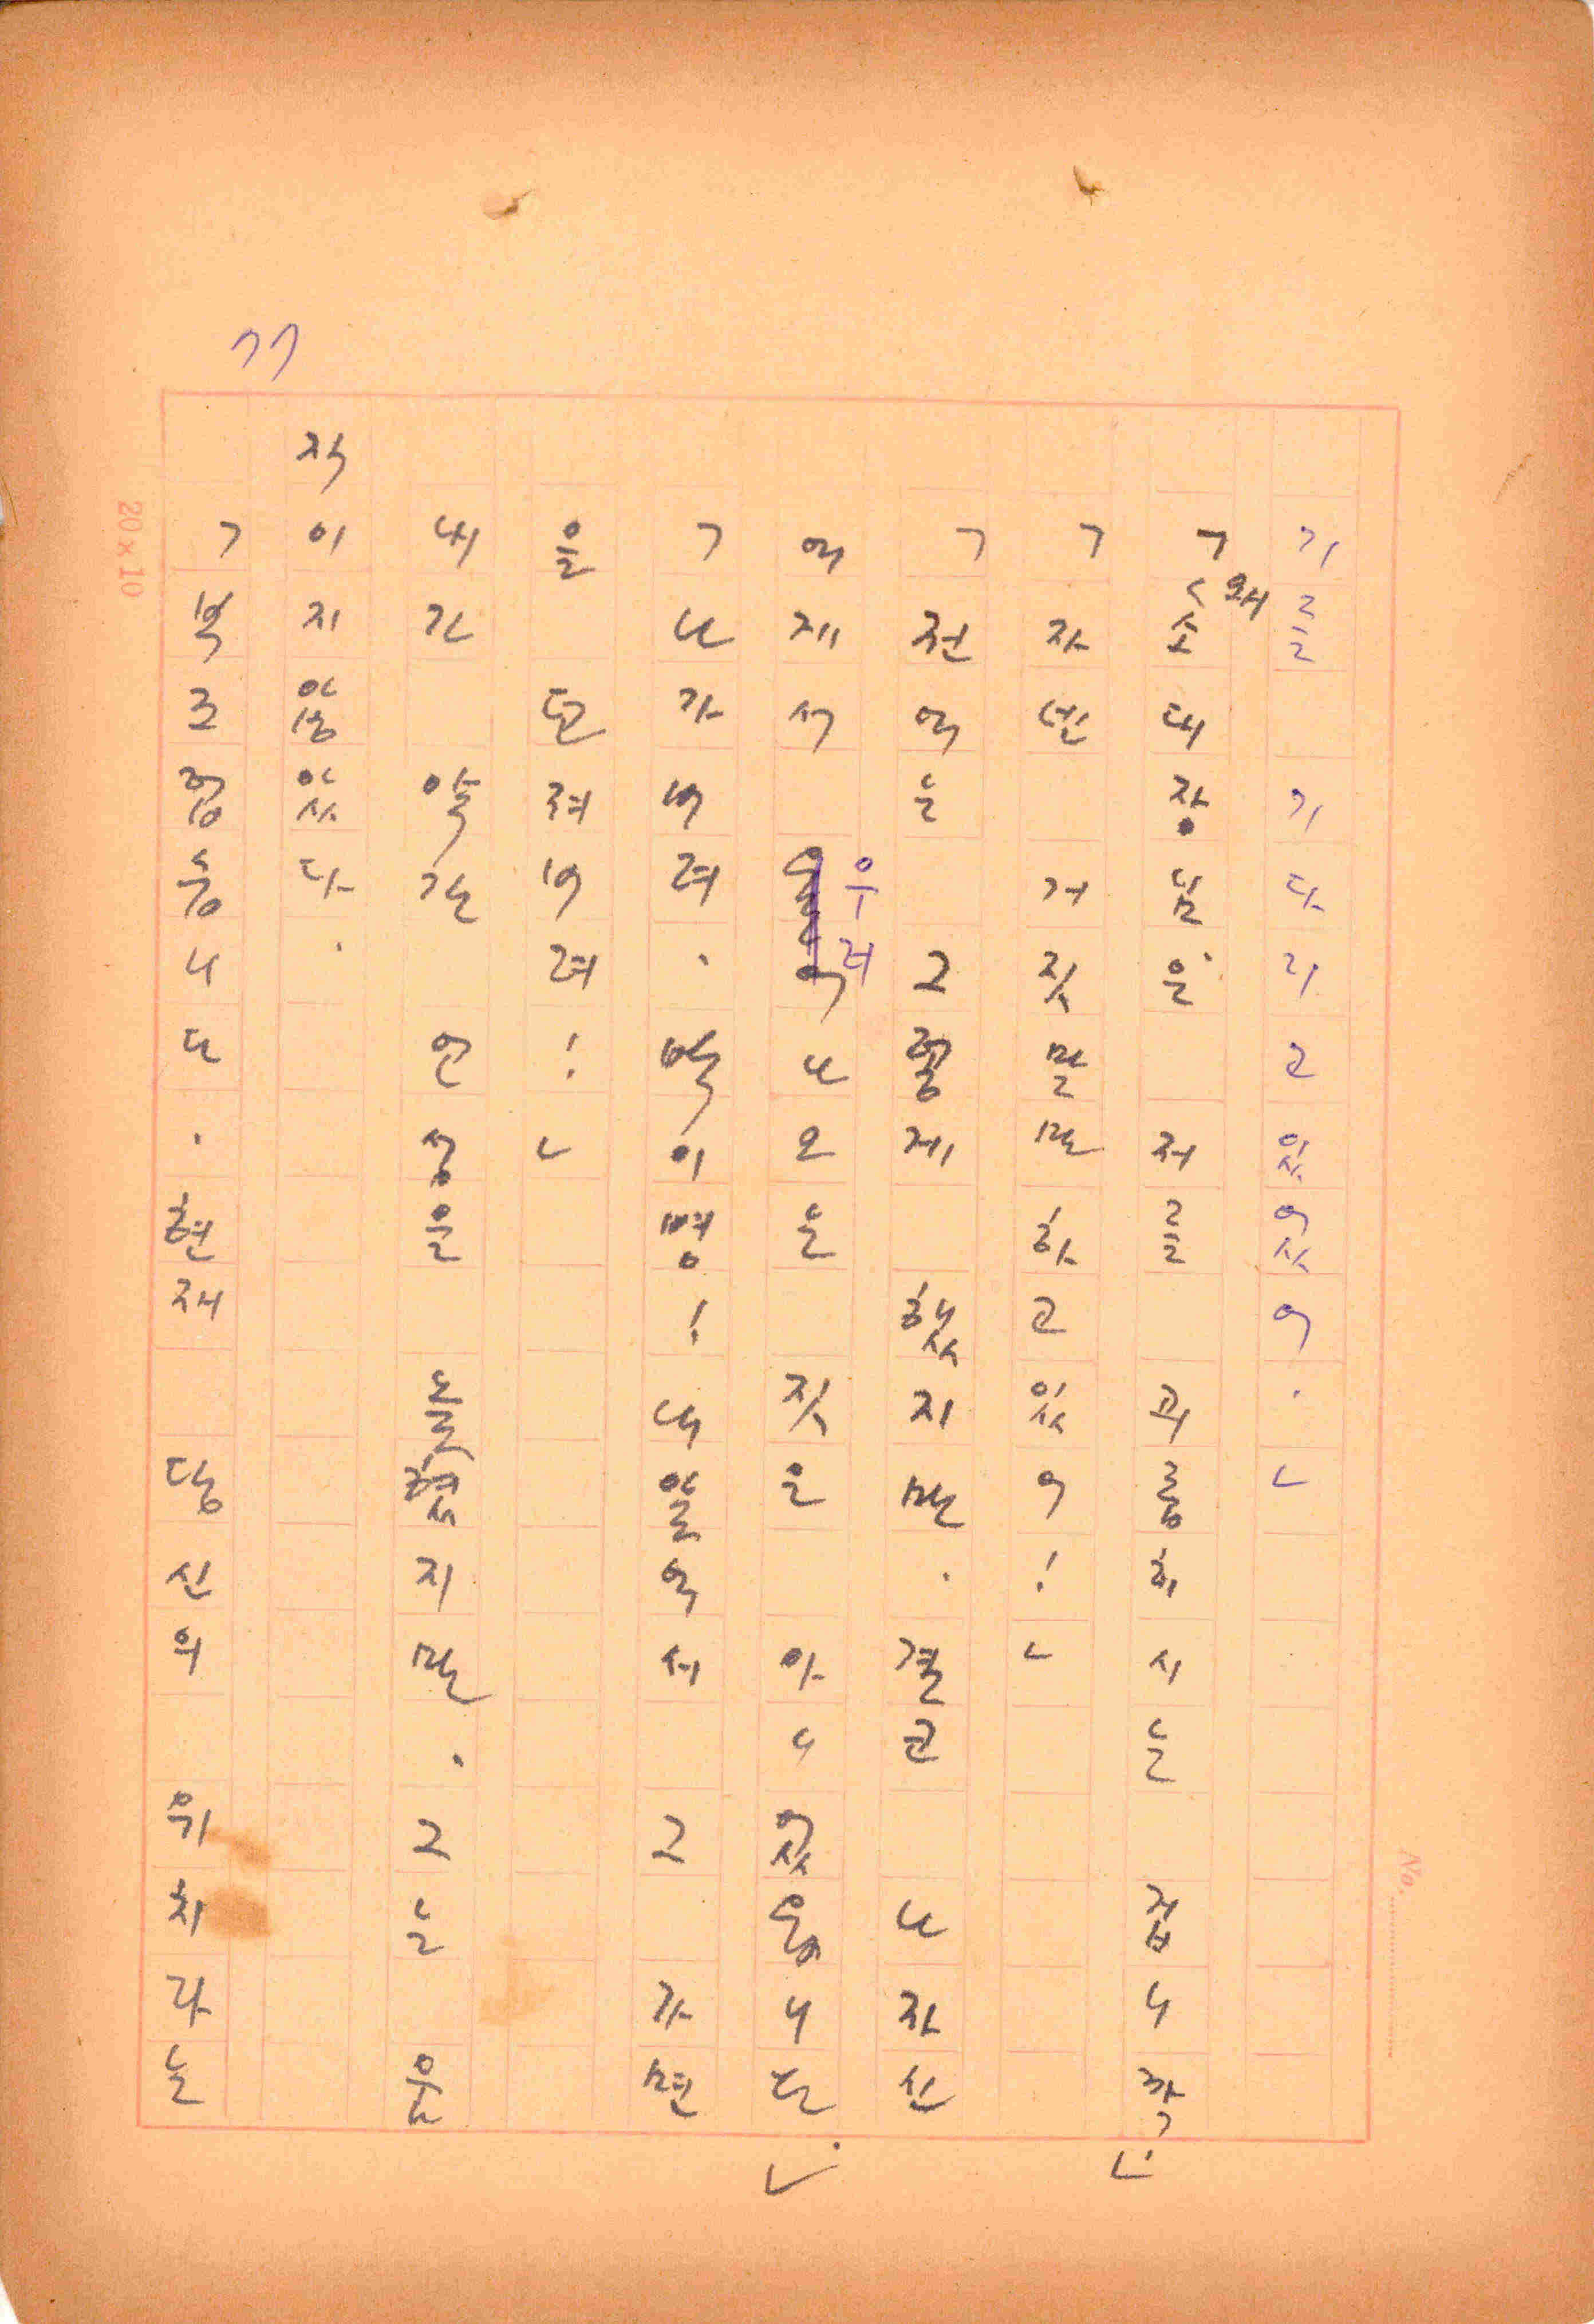 77
기를 기다리고있었어.」
「왜 소대장님은 저를 괴롭히시는 겁니까.」
「자넨 거짓말만하고있어!」
「전에는 그렇게 했지만. 결코 나자신
에게서 우러나오는 짓은 아니었읍니다.」
「나가버려. 박이병! 내앞에서 그 가면
을 던져버려!」
내가 약간 언성을 높혔지만. 그는 움
직이지않았다.
「부끄럽습니다. 현재 당신의 위치라는
20 x 10
No.